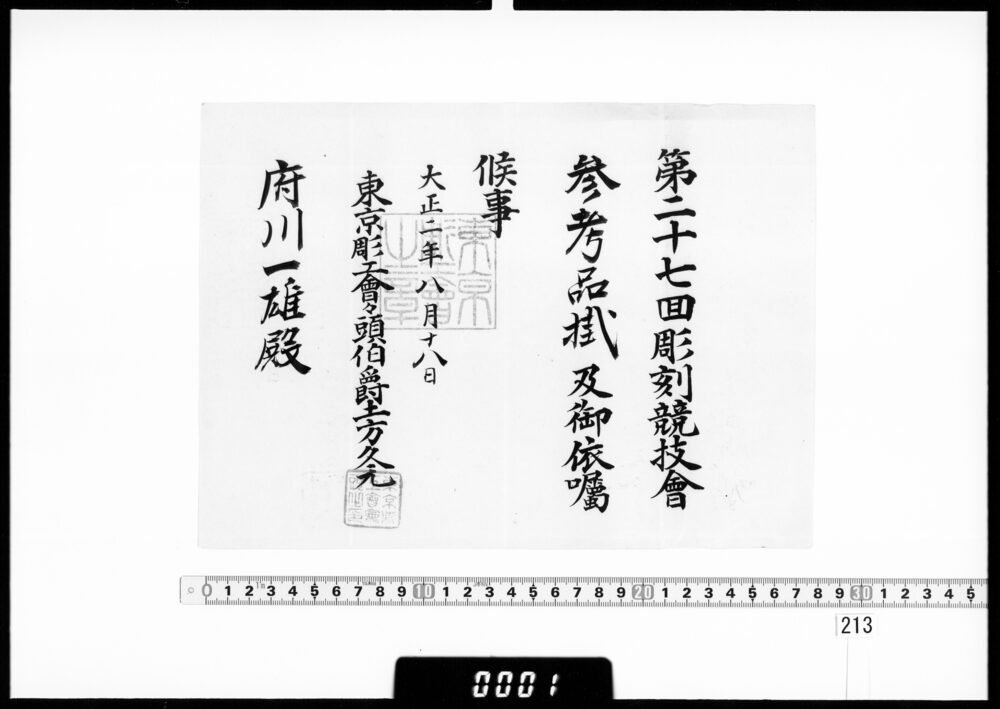 第二十七回彫刻競技會
参考品掛及御依囑
候事
大正二年八月十八日
東京彫工會々頭伯爵土方久元
府川一雄殿
東京彫工會之章
0 1 2 3 4 5 6 7 8 9 10 1 2 3 4 5 6 7 8 9 20 1 2 3 4 5 6 7 8 9 30 1 2 3 4 5
213
0001